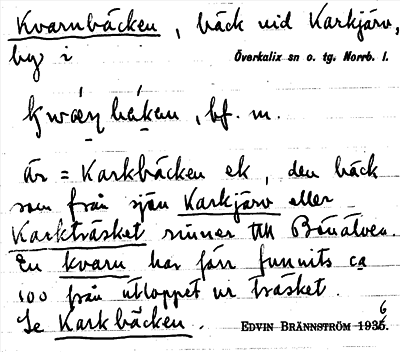 Kvarnbäcken, bäck vid Karkjärv,
by i Överkalix sn o. tg. Norrb. l.
bf. m.
är = Karkbäcken ek, den bäck
som från sjön Karkjärv eller
Karkträsket rinner till Bönälven.
En kvarn har förr funnits ca
100 från utloppet ur träsket.
Se Karkbäcken. EDVIN BRÄNNSTRÖM 1936.